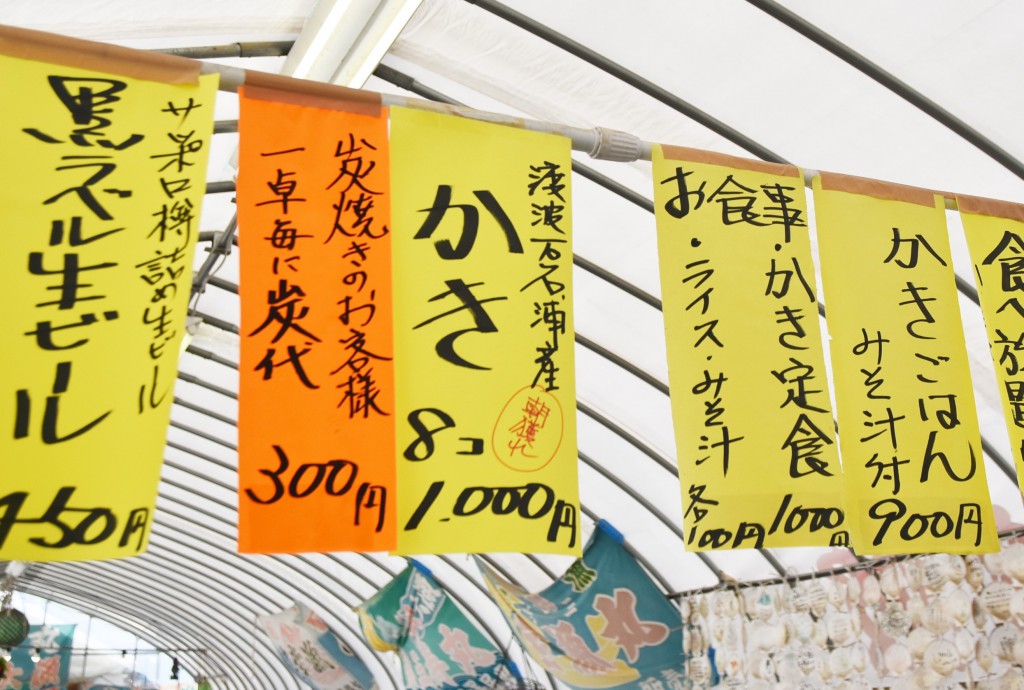 樽詰め生ビール
黒ラベル生ビール
450円
炭焼きのお客様
一卓毎に炭代
300円
渡波万石浦産
朝獲れ
かき
8コ
1.000円
お食事
・かき定食
1000円
・ライス・みそ汁
各100円
かきごはん
みそ汁付
900円
食べ放題
丸